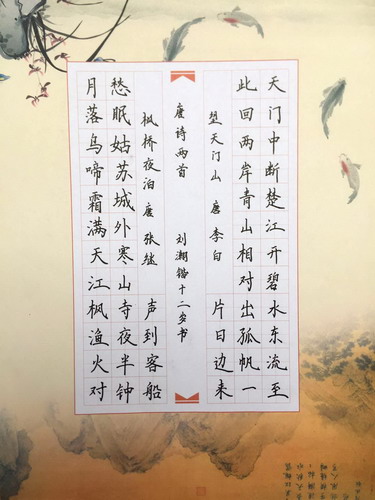 天门中断楚江开碧水东流至
此回两岸青山相对出孤帆一
片日边来
望天门山 唐 李白
唐诗两首 刘 十二岁书
月落乌啼霜满天江枫渔火对
愁眠姑苏城外寒山寺夜半钟
声到客船
枫桥夜泊 唐 张继